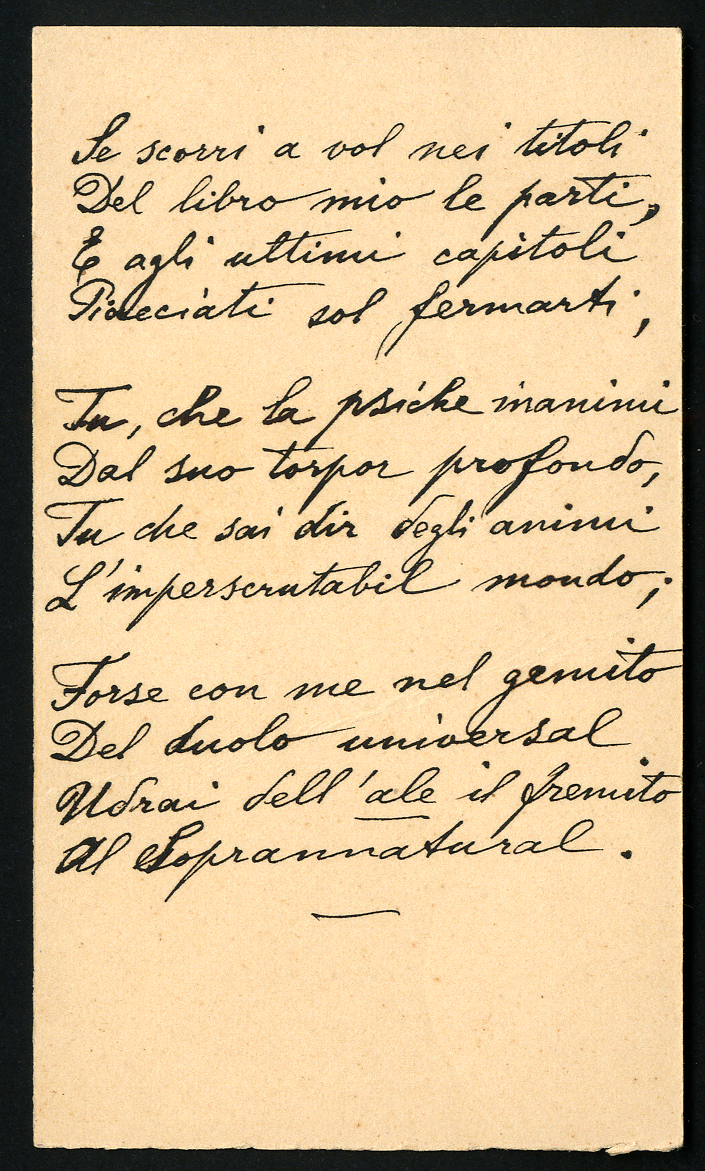 Se scorri a vol nei titoli
Del libro mio le parti,
E agli ultimi capitoli
Piacciati sol fermarti,
Tu, che la psiche inanimi
Dal suo torpor profondo,
Tu che sai dir degli animi
L'imperscrutabil mondo;
Forse con me nel gemito
Del duolo universal
Udrai dell'ale il fremito
Al Soprannatural.